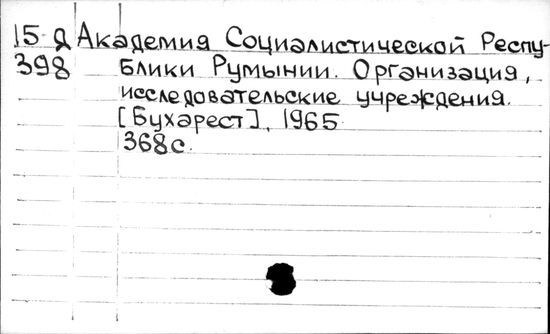 15 Д Академия Социалистической Респу-
398 блики Румынии. Организация,
исследовательские учреждения.
[Бухарест], 1965.
368с.